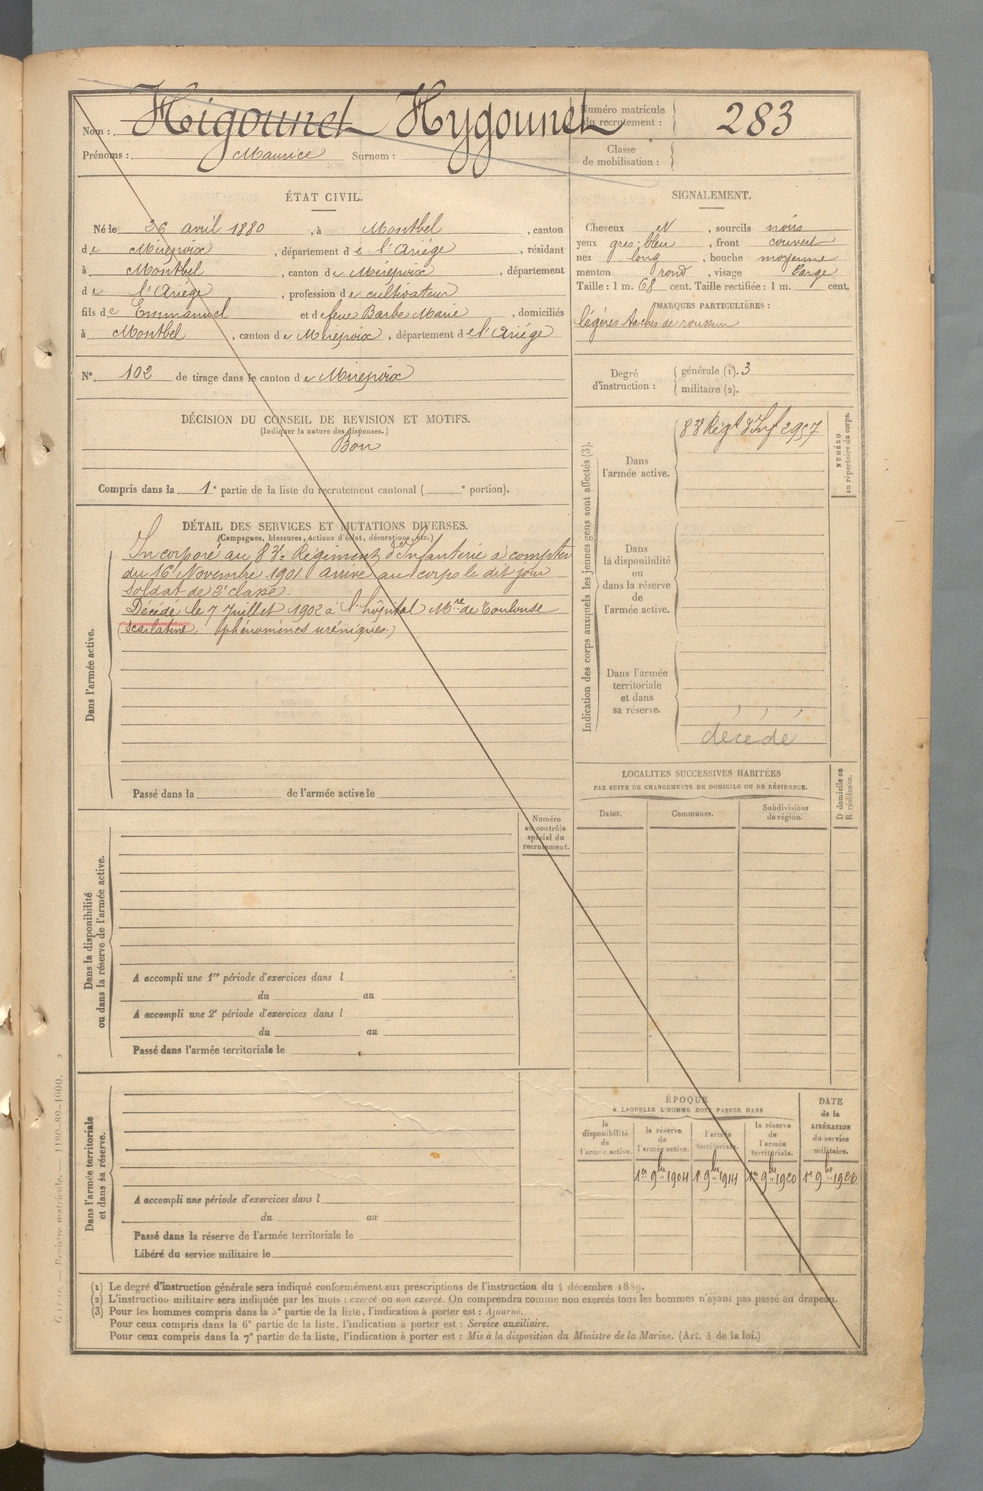 Nom : Higounet Hygounet
Prénoms : Maurice Surnom :
Numéro matricule du recrutement : 283
Classe de mobilisation :
ÉTAT CIVIL.
Né le 26 avril 1880, à Montbel, canton
de Mirepoix, département de l'Ariège, résidant
à Montbel, canton de Mirepoix, département
de l'Ariège, profession de cultivateur
fils de Emmanuel et de feue Barbe Marie, domiciliés
à Montbel, canton de Mirepoix, département de l'Ariége
N° 102 de tirage dans le canton de Mirepoix
DÉCISION DU CONSEIL DE REVISION ET MOTIFS.
(Indiquer la nature des dispenses.)
Bon
Compris dans la 1e partie de la liste du recrutement cantonal ( e portion).
SIGNALEMENT.
Cheveux N, sourcils noirs
yeux gris-bleu, front couvert
nez long, bouche moyenne
menton rond, visage large
Taille : 1 m. 68 cent. Taille rectifiée : 1 m. cent.
MARQUES PARTICULIÈRES :
légères taches de rousseur
Degré d'instruction :
générale (1). 3
militaire (2).
DÉTAIL DES SERVICES ET MUTATIONS DIVERSES.
(Campagnes, blessures, Actions d'éclat, décorations, etc.)
Dans l'armée active.
Incorporé au 83e Régiment d'Infanterie à compter
du 16 Novembre 1901 arrivé au corps le dit jour
soldat de 2e classe.
Décédé le 7 Juillet 1902 à l'hôpital Mre de Toulouse
(scarlatine, phénomènes urémiques.)
Passé dans la de l'armée active le
Indication des corps auxquels les jeunes gens sont affectés (3).
Dans l'armée active.
83 Régt d'Inf 2957
NUMÉRO au répertoire du corps.
Dans la disponibilité ou dans la réserve de l'armée active.
Dans l'armée territoriale et dans sa réserve.
décédé
LOCALITES SUCCESSIVES HABITÉES
PAR SUITE DE CHANGEMENTS DE DOMICILE OU DE RÉSIDENCE.
Dates. Communes. Subdivisions de région.
D domicile ou R résidence.
Dans la disponibilité ou dans la réserve de l'armée active.
Numéro au contrôle spécial du recrutement.
A accompli une 1re période d'exercices dans l
du au
A accompli une 2e période d'exercices dans l
du au
Passé dans l'armée territoriale le
Dans l'armée territoriale et dans sa réserve.
A accompli une période d'exercices dans l
du au
Passé dans la réserve de l'armée territoriale le
Libéré du service militaire le
ÉPOQUE
À LAQUELLE L'HOMME DOIT PASSER DANS
la disponibilité de l'armée active.
la réserve de l'armée active.
l'armée territoriale.
la réserve de l'armée territoriale.
DATE de la LIBÉRATION du service militaire.
1er 9bre 1904 1 9bre 1914 1er 9bre 1920 1er 9bre 1926
(1) Le degré d'instruction générale sera indiqué conformément aux prescriptions de l'instruction du 4 décembre 1889.
(2) L'instruction militaire sera indiquée par les mots : exercé ou non exercé. On comprendra comme non exercés tous les hommes n'ayant pas passé au drapeau.
(3) Pour les hommes compris dans la 5e partie de la liste, l'indication à porter est : Ajourné.
Pour ceux compris dans la 6e partie de la liste, l'indication à porter est : Service auxiliaire.
Pour ceux compris dans la 7e partie de la liste, l'indication à porter est : Mis à la disposition du Ministre de la Marine. (Art. 4 de la loi.)
Registre matricule. — 1180-80-1900.